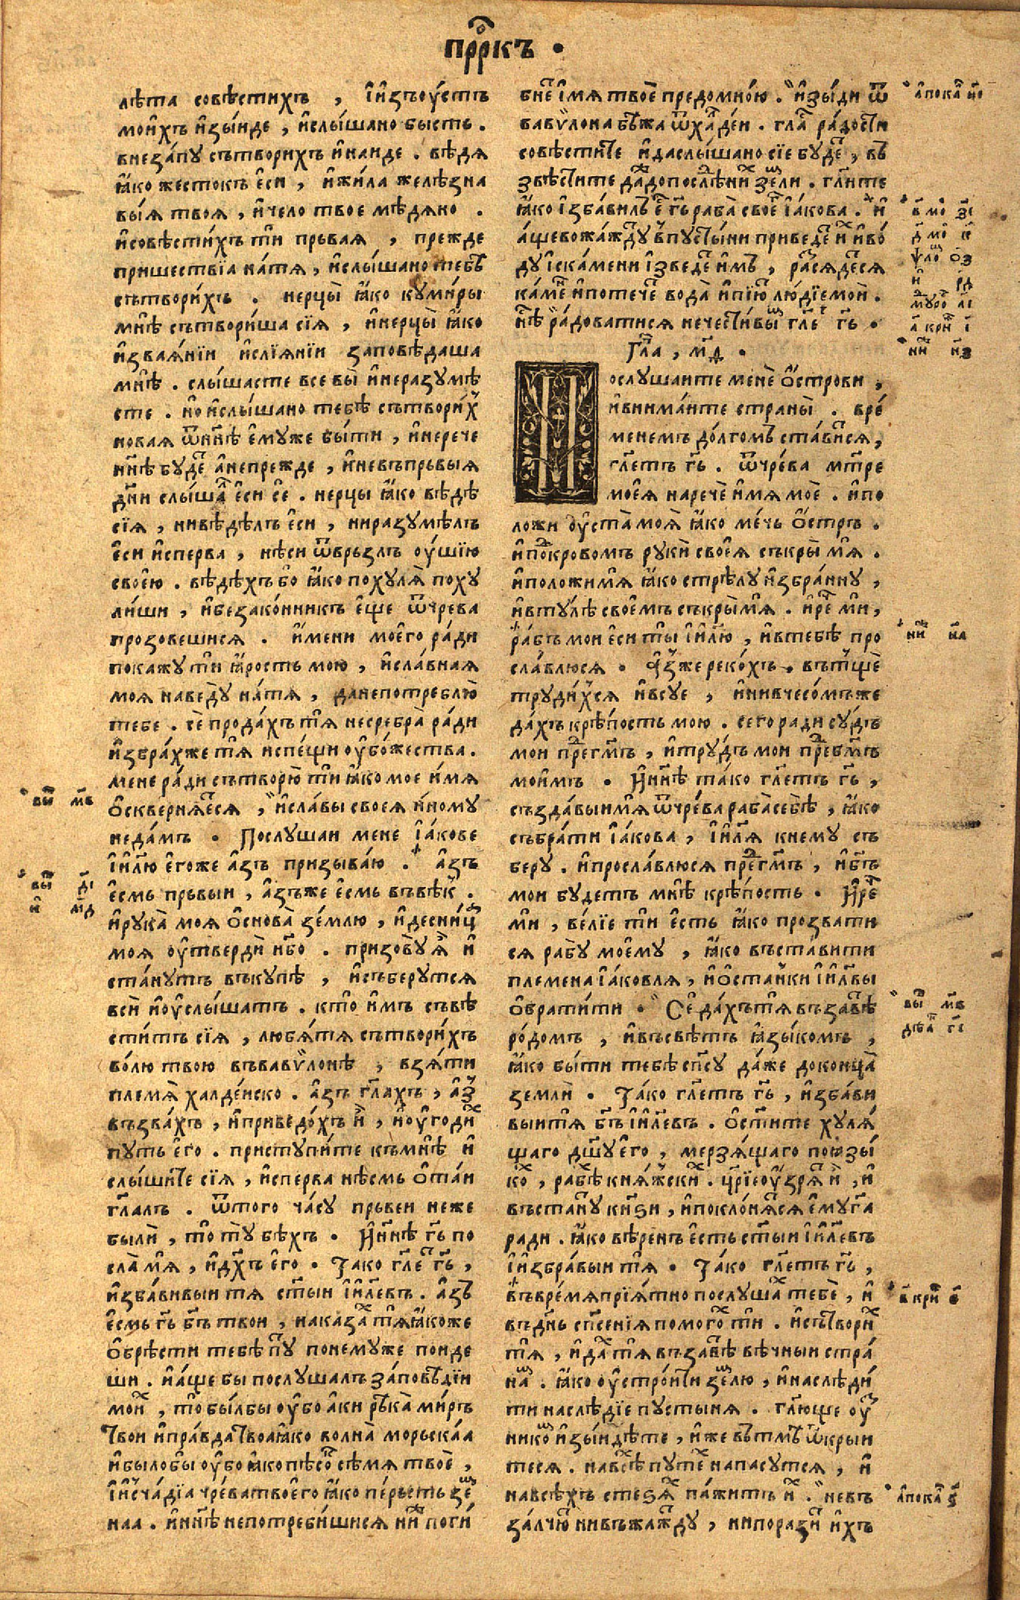 прⷪ҇ркъ ·
лѣта совѣстихъ , и҆изъꙋ҆стъ
мои҆хъ и҆зыиде , и҆слышано бысть .
внезапꙋ сътворихъ и҆наиде . вѣдя
ꙗ҆ко жестокъ є҆си , и҆жила желѣзна
выѧ твоя , и҆чело твое мѣдяно .
и҆совѣстихъ ти прьвая , прежде
пришествїа натя , и҆слышано тебѣ
сътворихъ . нерцы ꙗ҆ко кумиры
мнѣ сътвориша сїя , и҆нерцы ꙗ҆ко
и҆зваянїи и҆слїянїи заповѣдаша
мнѣ . слышасте все вы и҆неразумѣ
сте . но и҆слышано тебѣ сътвориⷯ
новая ѿннѣ є҆муже быти , и҆нерече
ннѣ бꙋдⷷ а҆непрежде , и҆невъпрьвыя
дни слышаⷧ є҆си се . нерцы ꙗ҆ко вѣдѣ
сїя , нивѣдѣлъ є҆си , ниразумѣлъ
є҆си и҆сперва , нѣси ѿврьзлъ ꙋ҆шїю
своею . вѣдѣхъ бо ꙗ҆ко похуляя поху
лиши , и҆безаконникъ є҆ще ѿчрева
прозовешися . и҆мени моего ради
покажу ти ꙗ҆рость мою , и҆славная
моя наведу натя , данепотреблю
тебе . се продахъ тя несребра ради
и҆збрахже тя испещи ꙋ҆божества .
мене ради сътворю ти ꙗ҆ко мое и҆мя
ѻ҆скверняется , и҆славы своея и҆ному
недамъ . Послушаи мене і҆акове
і҆и҆лю є҆гоже а҆зъ призываю . а҆зъ
є҆смь прьвыи , а҆зъже є҆смь въвѣкⷤ .
и҆рука моя ѻ҆снова землю , и҆десниⷰ
моя ꙋ҆тверди нбо . призову ꙗ҆ и҆
стануть въкупѣ , и҆съберутся
вси и҆ꙋ҆слышать . кто и҆мъ съвѣ
стить сїя , любятя сътворихъ
волю твою въвавѷлонѣ , взяти
племя халдеиско . а҆зъ глахъ , а҆ⷥ
възвахъ , и҆приведохъ и҆ , и҆ꙋ҆годи
путь є҆го . приступите къмнѣ и҆
слышите сїя , и҆сперва нѣсмь ѻ҆таи
глалъ . ѿтого часу прьвеи неже
были , то ту бѣхъ . И҆ннѣ гь по
сла мя , и҆дхъ є҆го . Тако глⷷ гь ,
и҆збавивыи тя стыи і҆и҆левъ . а҆зъ
є҆смь гь бъ твои , наказаⷯ тя ꙗ҆коже
ѻ҆брѣсти тебѣ пꙋ понемуже поиде
ши . и҆аще бы послушалъ заповѣдїи
моиⷯ , то былбы ꙋ҆бо аки рѣка миръ
твои и҆правда твоа ꙗ҆ко волна морьскаа
и҆былобы ꙋ҆бо ꙗ҆ко пѣсоⷦ сѣмя твое ,
і҆и҆счадїа чрева твоего ꙗ҆ко персть зеⷨ
наа . и҆ннѣ непотребишися нⷤи поги
бнⷷ и҆мя твое предомною . и҆зыди ѿ
вавѷлона бѣжа ѿхалдеи . глаⷭ радости
совѣстите и҆даслышано сїе будⷷ , въ
звѣстите даждо послѣдниⷯ земли . глите
ꙗ҆ко і҆збавилъ є҆ гь раба своеⷢ і҆акова . и҆
а҆ще вожаждꙋ впустыни приведⷷ иⷯ и҆во
ду і҆скамени і҆зведⷷ и҆мъ , разсядеся
камⷷ и҆потечⷷ вода и҆пїюⷮ людїе мои .
нѣⷭ радоватися нечестивыⷨ глⷷ гь .
Гла , м҃д .
Послушаите мене ѻ҆строви ,
и҆внимаите страны . вре
менемъ долгомъ ставися ,
глеть гь . ѿчрева мтре
моея нарече и҆мя мое . и҆по
ложи ꙋ҆ста моя ꙗ҆ко мечь ѻ҆стръ .
и҆покровомъ руки своея съкры мя .
и҆положи мя ꙗ҆ко стрѣлу и҆збранну ,
и҆втулѣ своемъ съкры мя . и҆рⷷ ми ,
рабъ мои є҆си ты і҆и҆лю , и҆втебѣ про
славлюся . а҆ⷥже рекохъ . вътще
трудихся и҆всуе , и҆нивчесомъже
дахъ крѣпость мою . сего ради судъ
мои преⷣгмъ , и҆трудъ мои преⷣбмъ
моимъ . И҆ннѣ тако глеть гь ,
създавыи мя ѿчрева раба себѣ , ꙗ҆ко
събрати і҆акова , і҆и҆ля книему съ
беру . и҆прославлюся преⷣгмъ , и҆бъ
мои будеть мнѣ крѣпость . И҆рⷷ
ми , велїе ти є҆сть ꙗ҆ко прозвати
ся рабу моему , ꙗ҆ко въставити
племена і҆аковля , и҆ѻ҆станки і҆и҆лвы
ѻ҆братити . Се дахъ тя възавⷮѣ
родомъ , и҆въсвѣтъ ꙗ҆зыкомъ ,
ꙗ҆ко быти тебѣ спсу даже доконца
земли . Тако глеть гь , и҆збави
выи тя бъ і҆и҆левъ . ѻ҆стите хуля
щаго дшу є҆го , мерзящаго поꙗ҆зы
коⷯ , рабⷨѣ княжскиⷯ . црїе ꙋ҆зряⷮ и҆ , и҆
въстанꙋ кнѕи , и҆поклоняⷮся є҆му га
ради . ꙗ҆ко вѣренъ є҆сть стыи і҆и҆левъ
і҆и҆збравыи тя . Тако глеть гь ,
въ время прїятно послушаⷯ тебе , и҆
въднь спсенїя помогоⷯ ти . и҆сътвориⷯ
тя , и҆даⷯ тя възавⷮѣ вѣчныи стра
наⷨ . ꙗ҆ко ꙋ҆строити землю , и҆наслѣди
ти наслѣдїе пустыня . глюще ꙋ҆ⷥ
никоⷨ и҆зыидѣте , и҆же вътмⷷѣ ѿкрыи
теся . навсѣⷯ путеⷯ напасутся , и҆
навсѣхъ стеѕяⷯ пажить иⷯ . невъ
залчют нивъжаждꙋ , нипоразиⷮ и҆хъ